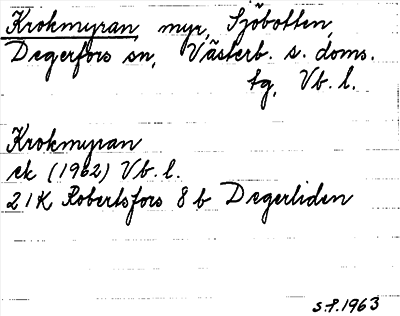 Krokmyran, myr, Sjöbotten,
Degerfors sn, Västerb. s. doms.
tg, Vb. l.
Krokmyran
ek (1962) Vb. l.
21K Robertsfors 8 b Degerliden
S.P. 1963